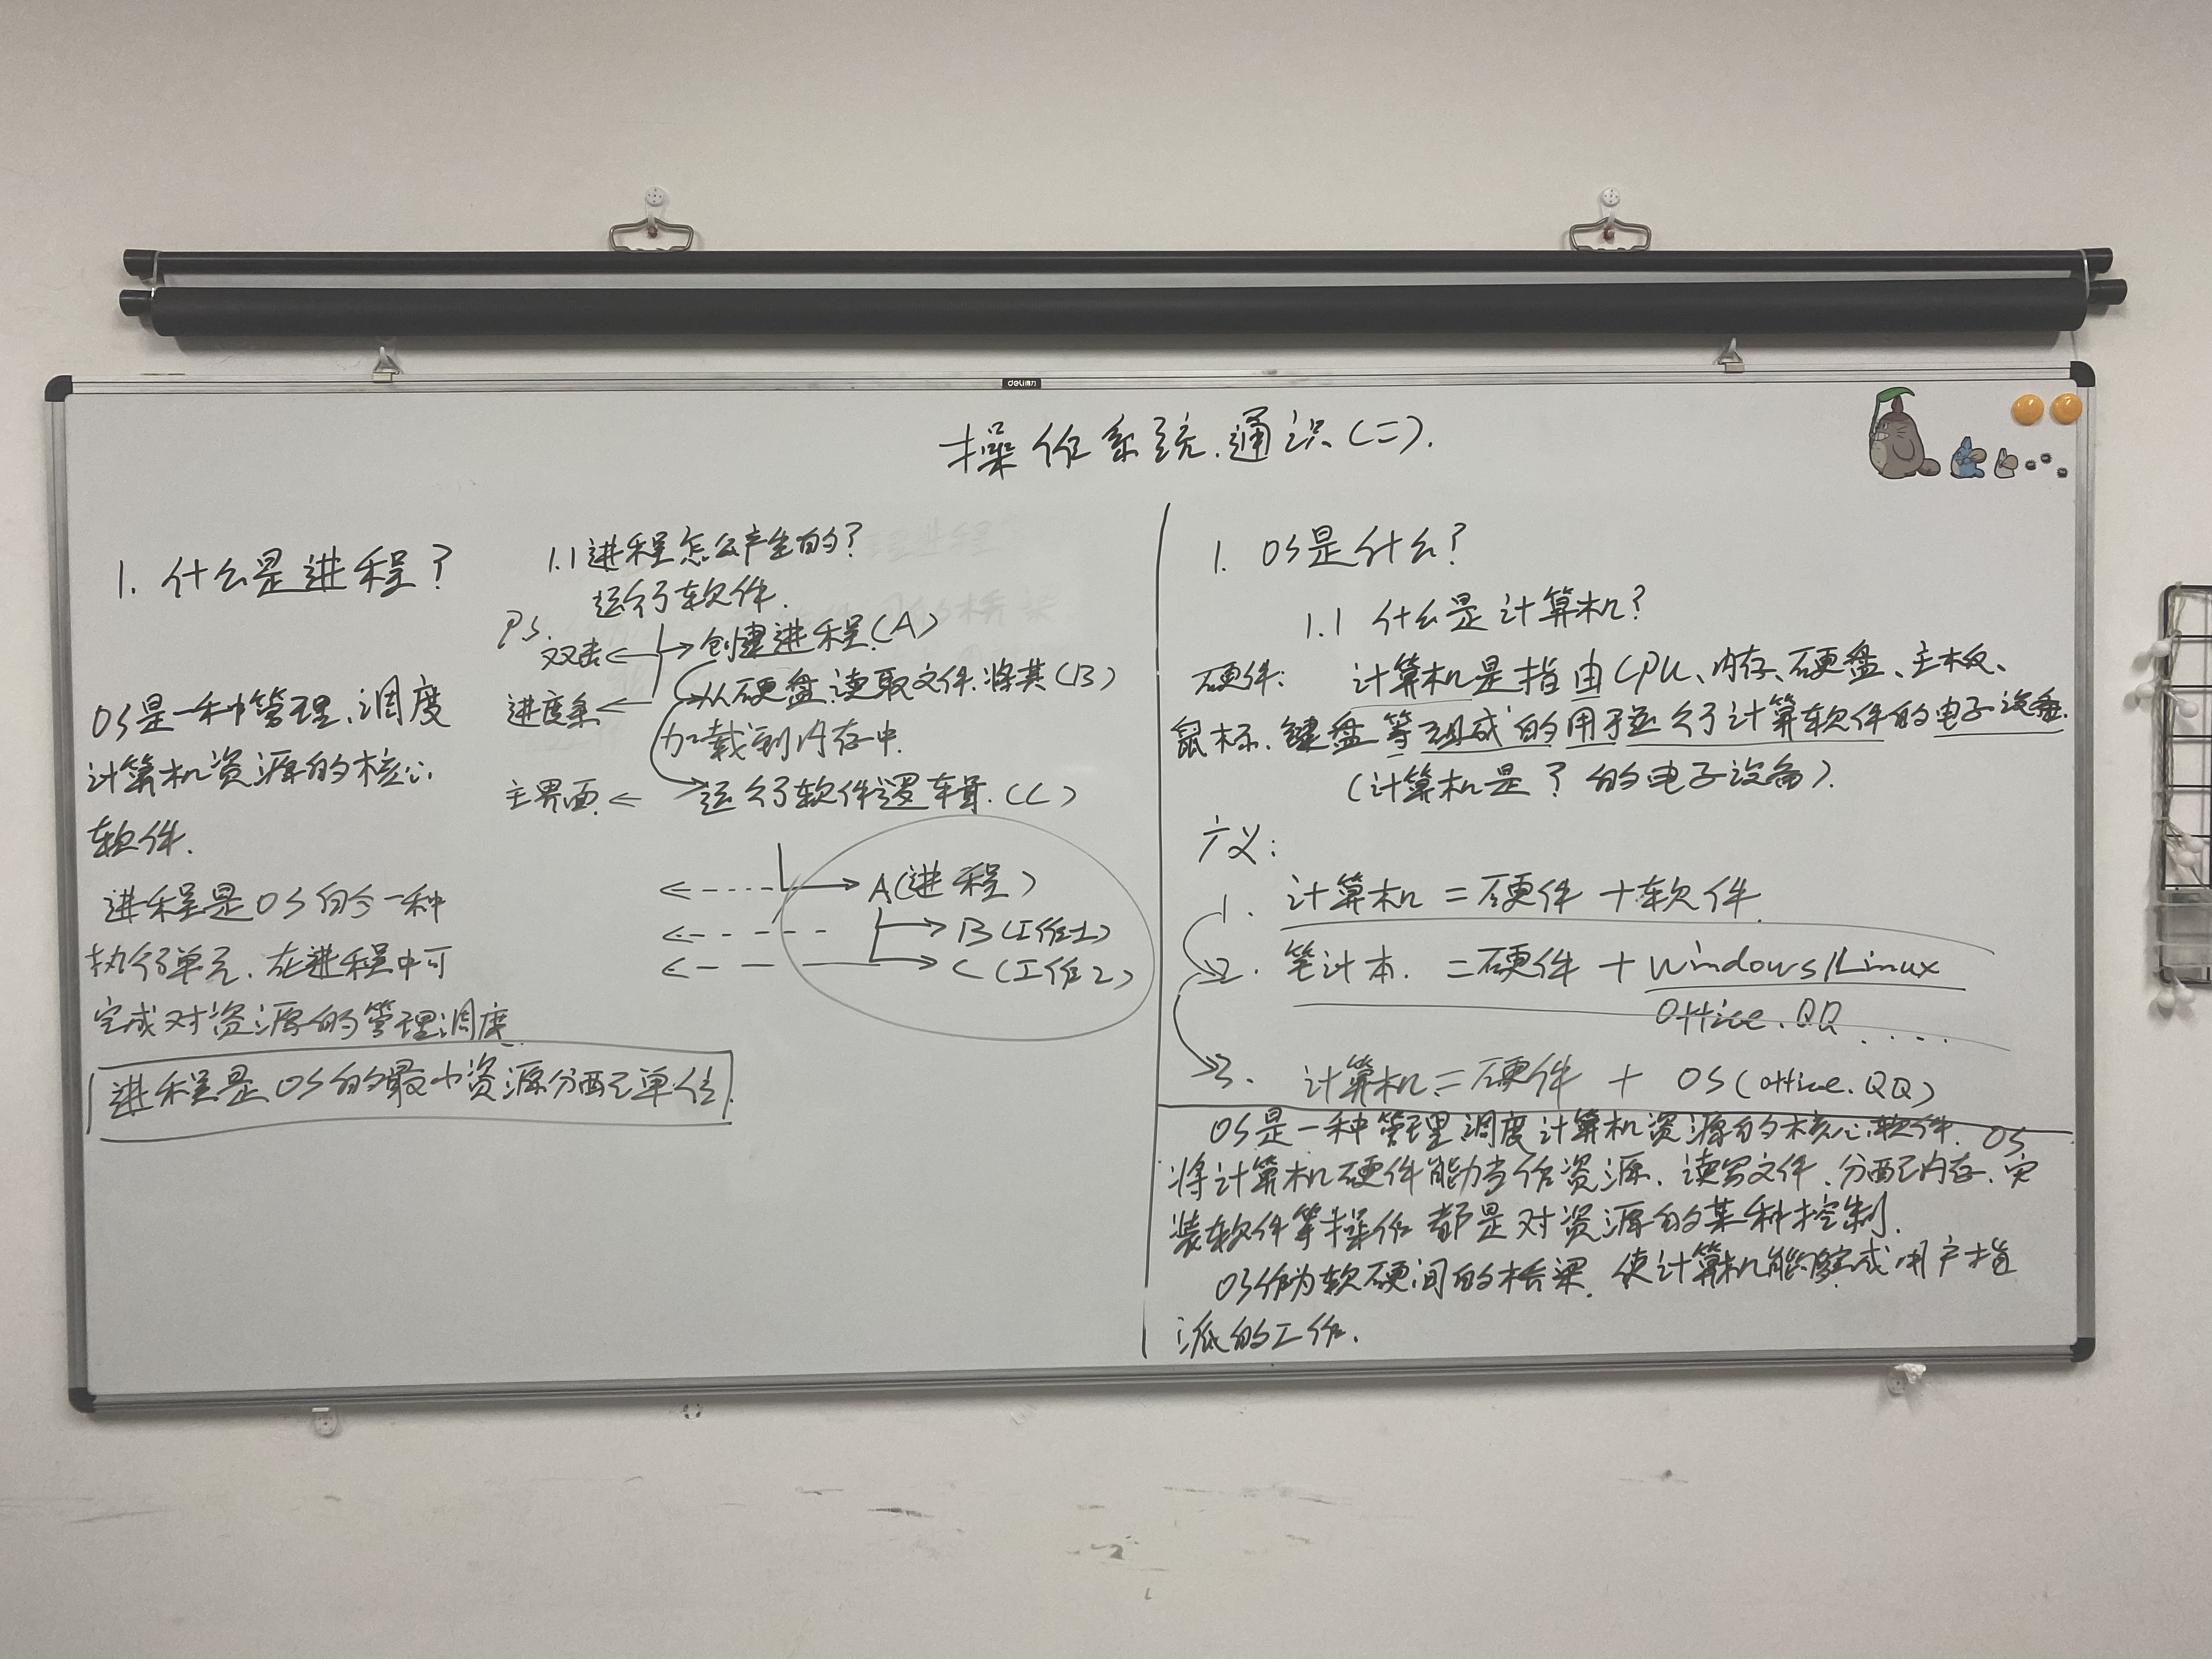 deli得力
操作系统.通识(二).
1. 什么是进程?
OS是一种管理、调度
计算机资源的核心
软件.
进程是OS的今一种
执行单元. 在进程中可
完成对资源的管理调度.
进程是OS的最小资源分配单位.
1.1 进程怎么产生的?
运行软件.
PS.
双击 ← → 创建进程.(A)
进度条 ← 从硬盘.读取文件.将其(B)
加载到内存中.
主界面 ← 运行软件逻辑.(C)
A(进程)
B(工作1)
C(工作2)
1. OS是什么?
1.1 什么是计算机?
硬件: 计算机是指由CPU、内存、硬盘、主板、
鼠标、键盘等组成的用于运行计算软件的电子设备.
(计算机是? 的电子设备).
广义:
1. 计算机 = 硬件 + 软件.
2. 笔计本. = 硬件 + Windows/Linux
Office.QQ .....
3. 计算机 = 硬件 + OS(office.QQ)
OS是一种管理.调度计算机资源的核心软件. OS
将计算机硬件能力当作资源. 读写文件.分配内存.安
装软件等操作都是对资源的某种控制.
OS作为软硬间的桥梁. 使计算机能够完成用户指
派的工作.